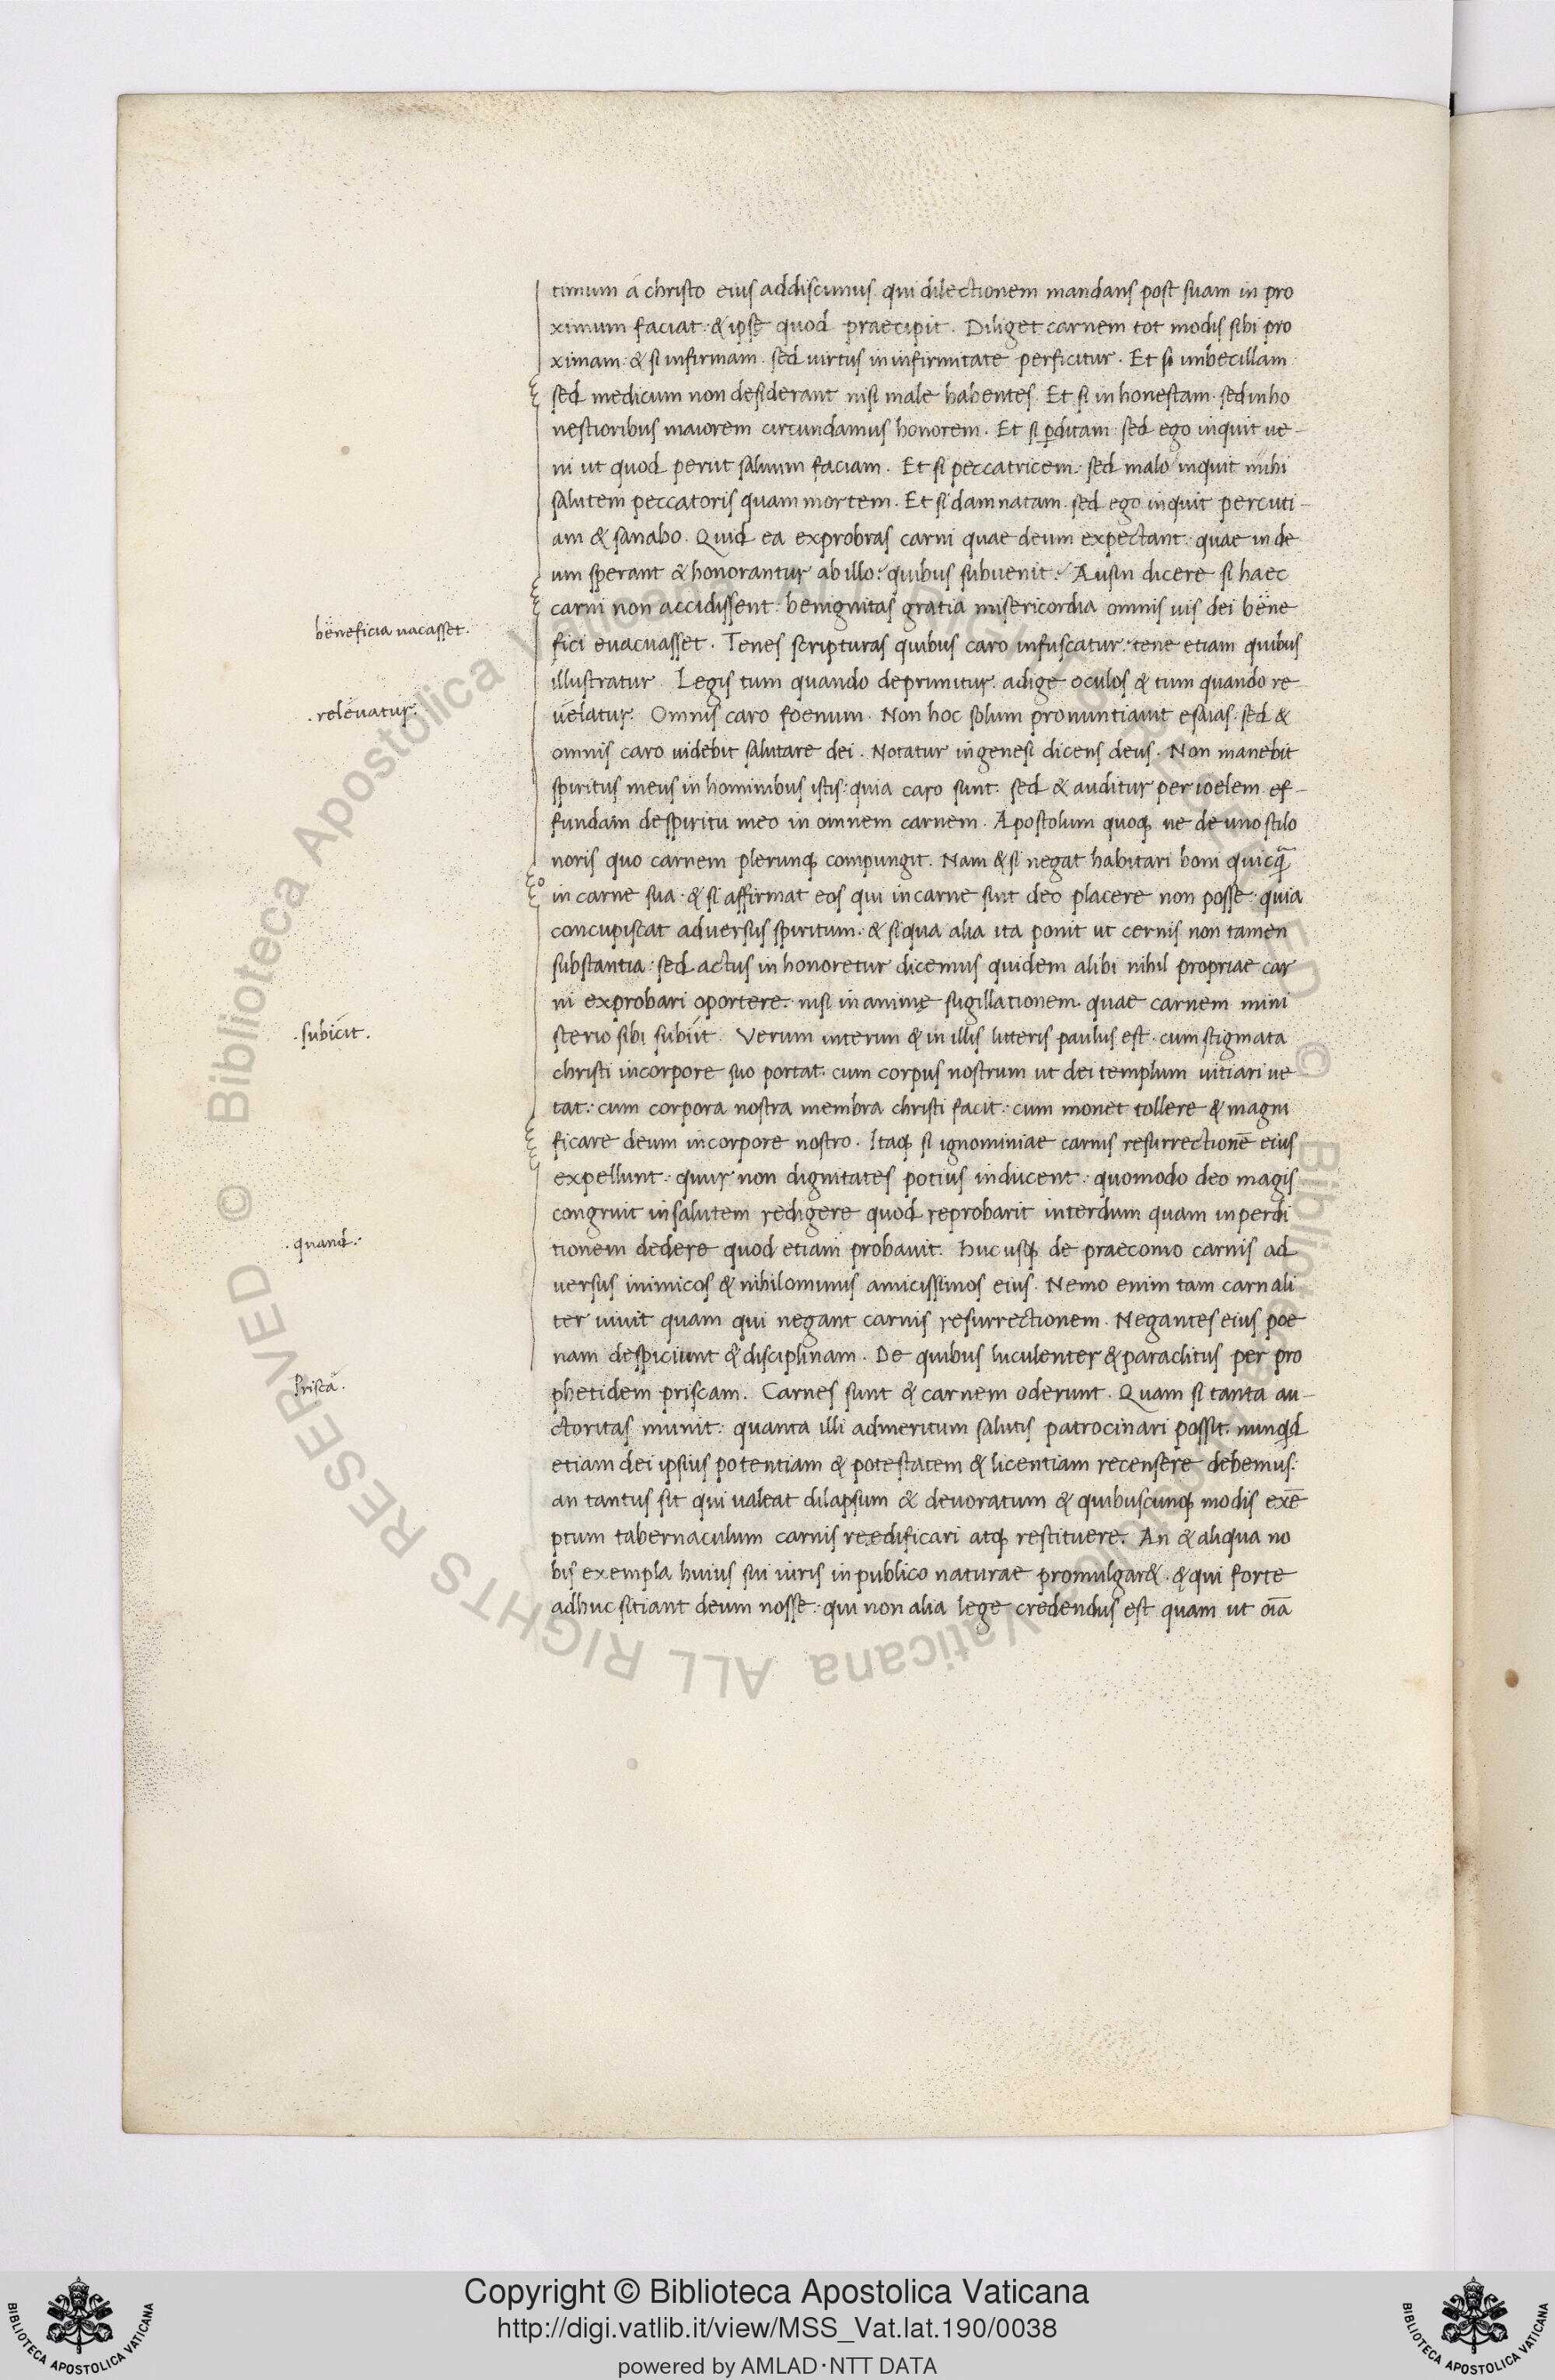 timum a christo eius addiscimus qui dilectionem mandans post suam in pro
ximum faciat: & ipse quod praecipit. Diliget carnem tot modis sibi pro
ximam: & si infirmam. sed uirtus in infirmitate perficitur. Et si imbecillam
sed medicum non desiderant nisi male habentes. Et si inhonestam. sed inho
nestioribus maiorem circundamus honorem. Et si ꝑditam: sed ego inquit ue-
ni ut quod periit saluum faciam. Et si peccatricem. sed malo inquit mihi
salutem peccatoris quam mortem. Et si damnatam. sed ego inquit percuti-
am & sanabo. Quid ea exprobras carni quae deum expectant: quae in de
um sperant & honorantur ab illo: quibus subuenit: Ausin dicere si haec
beneficia uacasset.
carni non accidissent: benignitas gratia misericordia omnis uis dei bene
fici euacuasset. Tenes scripturas quibus caro infuscatur: tene etiam quibus
illustratur. Legis tum quando deprimitur: adige oculos & tum quando re
.releuatur:
uelatur: Omnis caro foenum. Non hoc solum pronuntiauit esaias. sed &
omnis caro uidebit salutare dei. Notatur in genesi dicens deus. Non manebit
spiritus meus in hominibus istis: quia caro sunt: sed & auditur per ioelem. ef-
fundam de spiritu meo in omnem carnem. Apostolum quoqꝫ ne de uno stilo
noris quo carnem plerunqꝫ compungit. Nam & si negat habitari boni quicq̃
in carne sua. & si affirmat eos qui in carne sint deo placere non posse. quia
concupiscat aduersus spiritum. & siqua alia ita ponit ut cernis non tamen
substantia: sed actus inhonoretur dicemus quidem alibi nihil propriae car
ni exprobari oportere. nisi in animę sugillationem. quae carnem mini
.subicit.
sterio sibi subiit. Verum interim & in illis litteris paulus est. cum stigmata
christi in corpore suo portat. cum corpus nostrum ut dei templum uitiari ue
tat: cum corpora nostra membra christi facit: cum monet tollere & magni
ficare deum in corpore nostro. Itaqꝫ si ignominiae carnis resurrectionē eius
expellunt: quur non dignitates potius inducent: quomodo deo magis
congruit in salutem redigere quod reprobarit interdum quam in perdi
.quand.
tionem dedere quod etiam probauit. Huc usqꝫ de praeconio carnis ad
uersus inimicos & nihilominus amicissimos eius. Nemo enim tam carnali
ter uiuit quam qui negant carnis resurrectionem. Negantes eius poe
nam despiciunt & disciplinam. De quibus luculenter & paraclitus per pro
Prisca.
phetidem priscam. Carnes sunt & carnem oderunt. Quam si tanta au-
ctoritas munit: quanta illi ad meritum salutis patrocinari possit. nunqd
etiam dei ipsius potentiam & potestatem & licentiam recensere debemus:
an tantus sit qui ualeat dilapsum & deuoratum & quibuscunqꝫ modis exē
ptum tabernaculum carnis reædificari atqꝫ restituere. An & aliqua no
bis exempla huius sui iuris in publico naturae promulgar&. & qui forte
adhuc sitiant deum nosse: qui non alia lege credendus est quam ut oīa
© Biblioteca Apostolica Vaticana ALL RIGHTS RESERVED
Copyright © Biblioteca Apostolica Vaticana
http://digi.vatlib.it/view/MSS_Vat.lat.190/0038
powered by AMLAD·NTT DATA
BIBLIOTECA APOSTOLICA VATICANA
BIBLIOTECA APOSTOLICA VATICANA